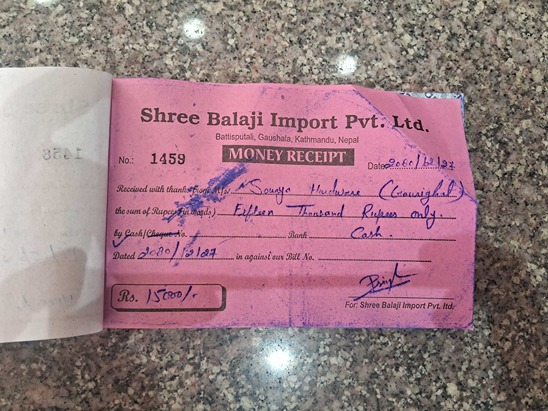 Shree Balaji Import Pvt. Ltd.
Battisputali, Gaushala, Kathmandu, Nepal
MONEY RECEIPT
No.: 1459 Date: 2080/12/27
Received with thanks from M/s Hardware
the sum of Rupees (in words) Fifteen Thousand Rupees only.
by Cash/Cheque No. Bank Cash.
Dated 2080/12/27 in against our Bill No.
Rs. 15000/-
For: Shree Balaji Import Pvt. Ltd.